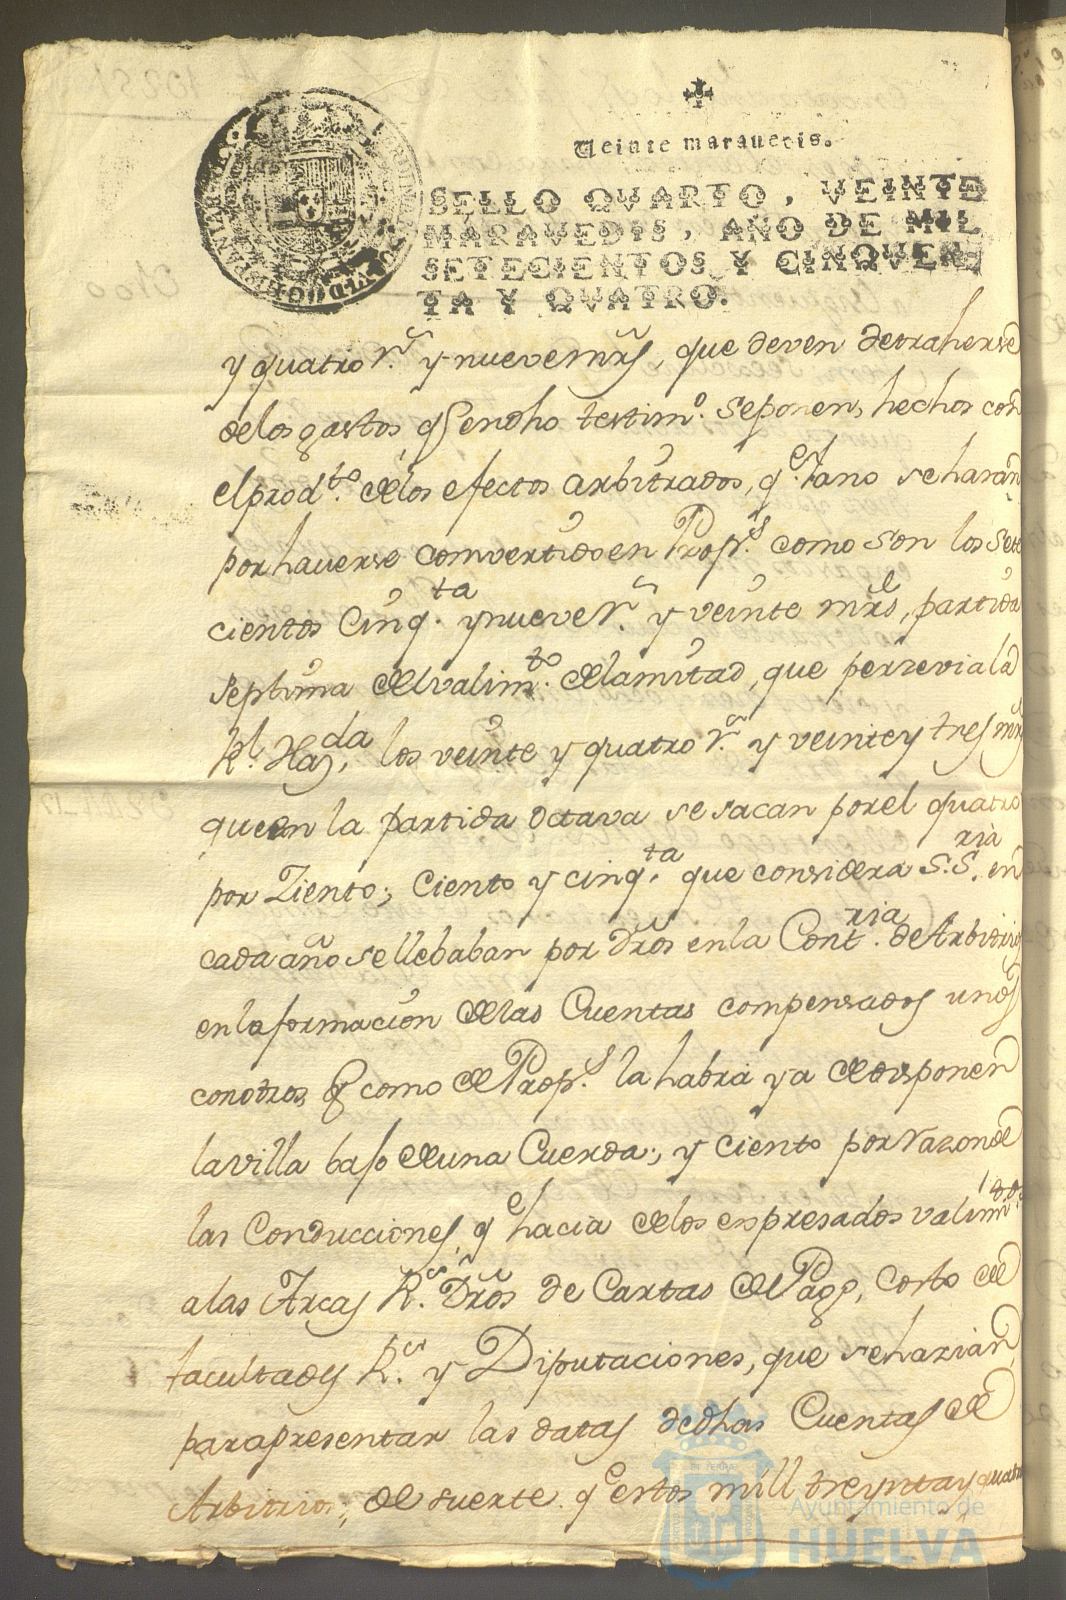 Veinte maravedis.
SELLO QVARTO, VEINTE
MARAVEDIS, AÑO DE MIL
SETECIENTOS Y CINQVEN
TA Y QVATRO.
y quatro r.s y nueve mrs, que deven detraherse
de los gastos, q en dho testim.o se ponen, hechos con
el prod.to de los efectos arbitrados, q.e ya no se harán
por haverse comvertido en Prop.s como son los sete
cientos Cinq.ta y nueve r.s y veinte mrs, partida
septima del valim.to de la mitad, que perzevia la
R.l Haz.da, los veinte y quatro r.s y veinte y tres mrs
que en la partida octava se sacan por el quatro
por Ziento; Ciento y cinq.ta que considera S.S.ria en
cada año se llebaban por dros en la Cont.ria de Arbitrios
en la formacion de las Cuentas compensados unos
con otros, q como de Prop.s la habrá ya de disponer
la villa bajo de una Cuerda; y ciento por razon de
las Conducciones, q.e hacia de los expresados valim.tos
a las Arcas R.s Dros de Cartas de Pago, Costo de
facultades R.s y Diputaciones, que se hazian,
para presentar las datas de dhas Cuentas de
Arbitrios; de suerte q.e estos mill treynta y quatro
Ayuntamiento de
HUELVA